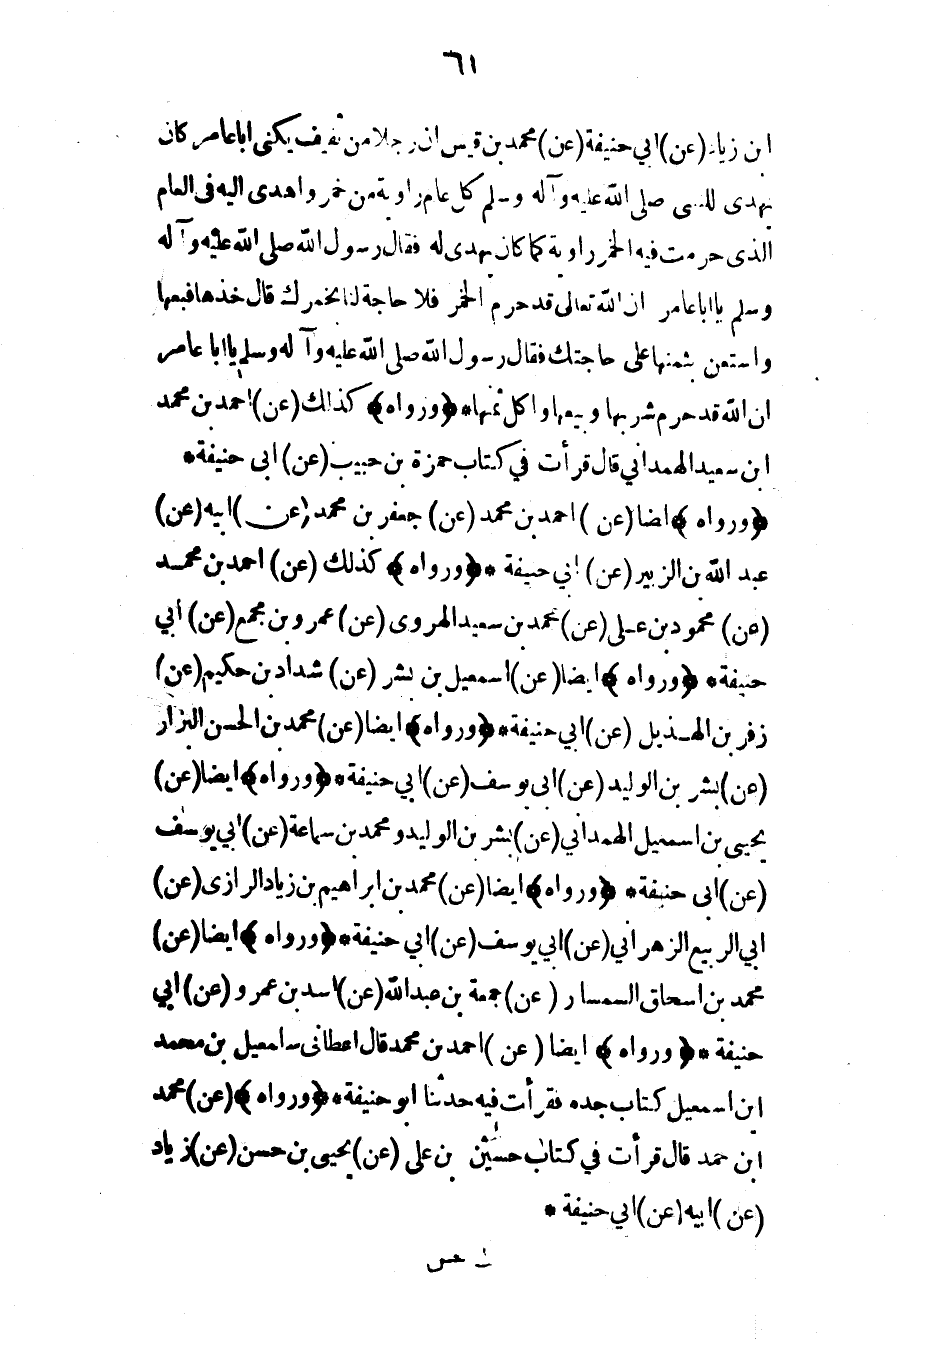 ٦١
ابن زياد (عن) ابي حنيفة (عن) محمد بن قيس ان رجلا من ثقيف يكنى ابا عامر كان
يهدى للنبى صلى الله عليه وآله وسلم كل عام راوية من خمر واهدى اليه فى العام
الذى حرمت فيه الخمر راوية كما كان يهدى له فقال رسول الله صلى الله عليه وآله
وسلم يا ابا عامر ان الله تعالى قد حرم الخمر فلا حاجة لنا بخمرك قال خذها فبعها
واستعن بثمنها على حاجتك فقال رسول الله صلى الله عليه وآله وسلم يا ابا عامر
ان الله قد حرم شربها وبيعها واكل ثمنها* ﴿ورواه﴾ كذلك (عن) احمد بن محمد
ابن سعيد الهمداني قال قرأت في كتاب حمزة بن حبيب (عن) ابى حنيفة*
﴿ورواه﴾ ايضا (عن) احمد بن محمد (عن) جعفر بن محمد (عن) ابيه (عن)
عبد الله بن الزبير (عن) ابي حنيفة * ﴿ورواه﴾ كذلك (عن) احمد بن محمد
(عن) محمود بن على (عن) محمد بن سعيد الهروى (عن) عمرو بن مجمع (عن) أبي
حنيفة* ﴿ورواه﴾ ايضا (عن) اسمعيل بن بشر (عن) شداد بن حكيم (عن)
زفر بن الهذيل (عن) ابي حنيفة* ﴿ورواه﴾ ايضا (عن) محمد بن الحسن البزار
(عن) بشر بن الوليد (عن) ابى يوسف (عن) ابي حنيفة* ﴿ورواه﴾ ايضا (عن)
يحيى بن اسمعيل الهمداني (عن) بشر بن الوليد و محمد بن سماعة (عن) ابي يوسف
(عن) ابى حنيفة* ﴿ورواه﴾ ايضا (عن) محمد بن ابراهيم بن زياد الرازى (عن)
ابي الربيع الزهراني (عن) ابي يوسف (عن) ابي حنيفة* ﴿ورواه﴾ ايضا (عن)
محمد بن اسحاق السمسار (عن) جمعة بن عبد الله (عن) اسد بن عمرو (عن) ابي
حنيفة * ﴿ورواه﴾ ايضا (عن) احمد بن محمد قال اعطانى اسمعيل بن محمد
ابن اسمعيل كتاب جده فقرأت فيه حدثنا ابو حنيفة* ﴿ورواه﴾ (عن) محمد
ابن حمد قال قرأت في كتاب حسين بن على (عن) يحيى بن حسن (عن) زياد
(عن) ابيه (عن) ابي حنيفة *